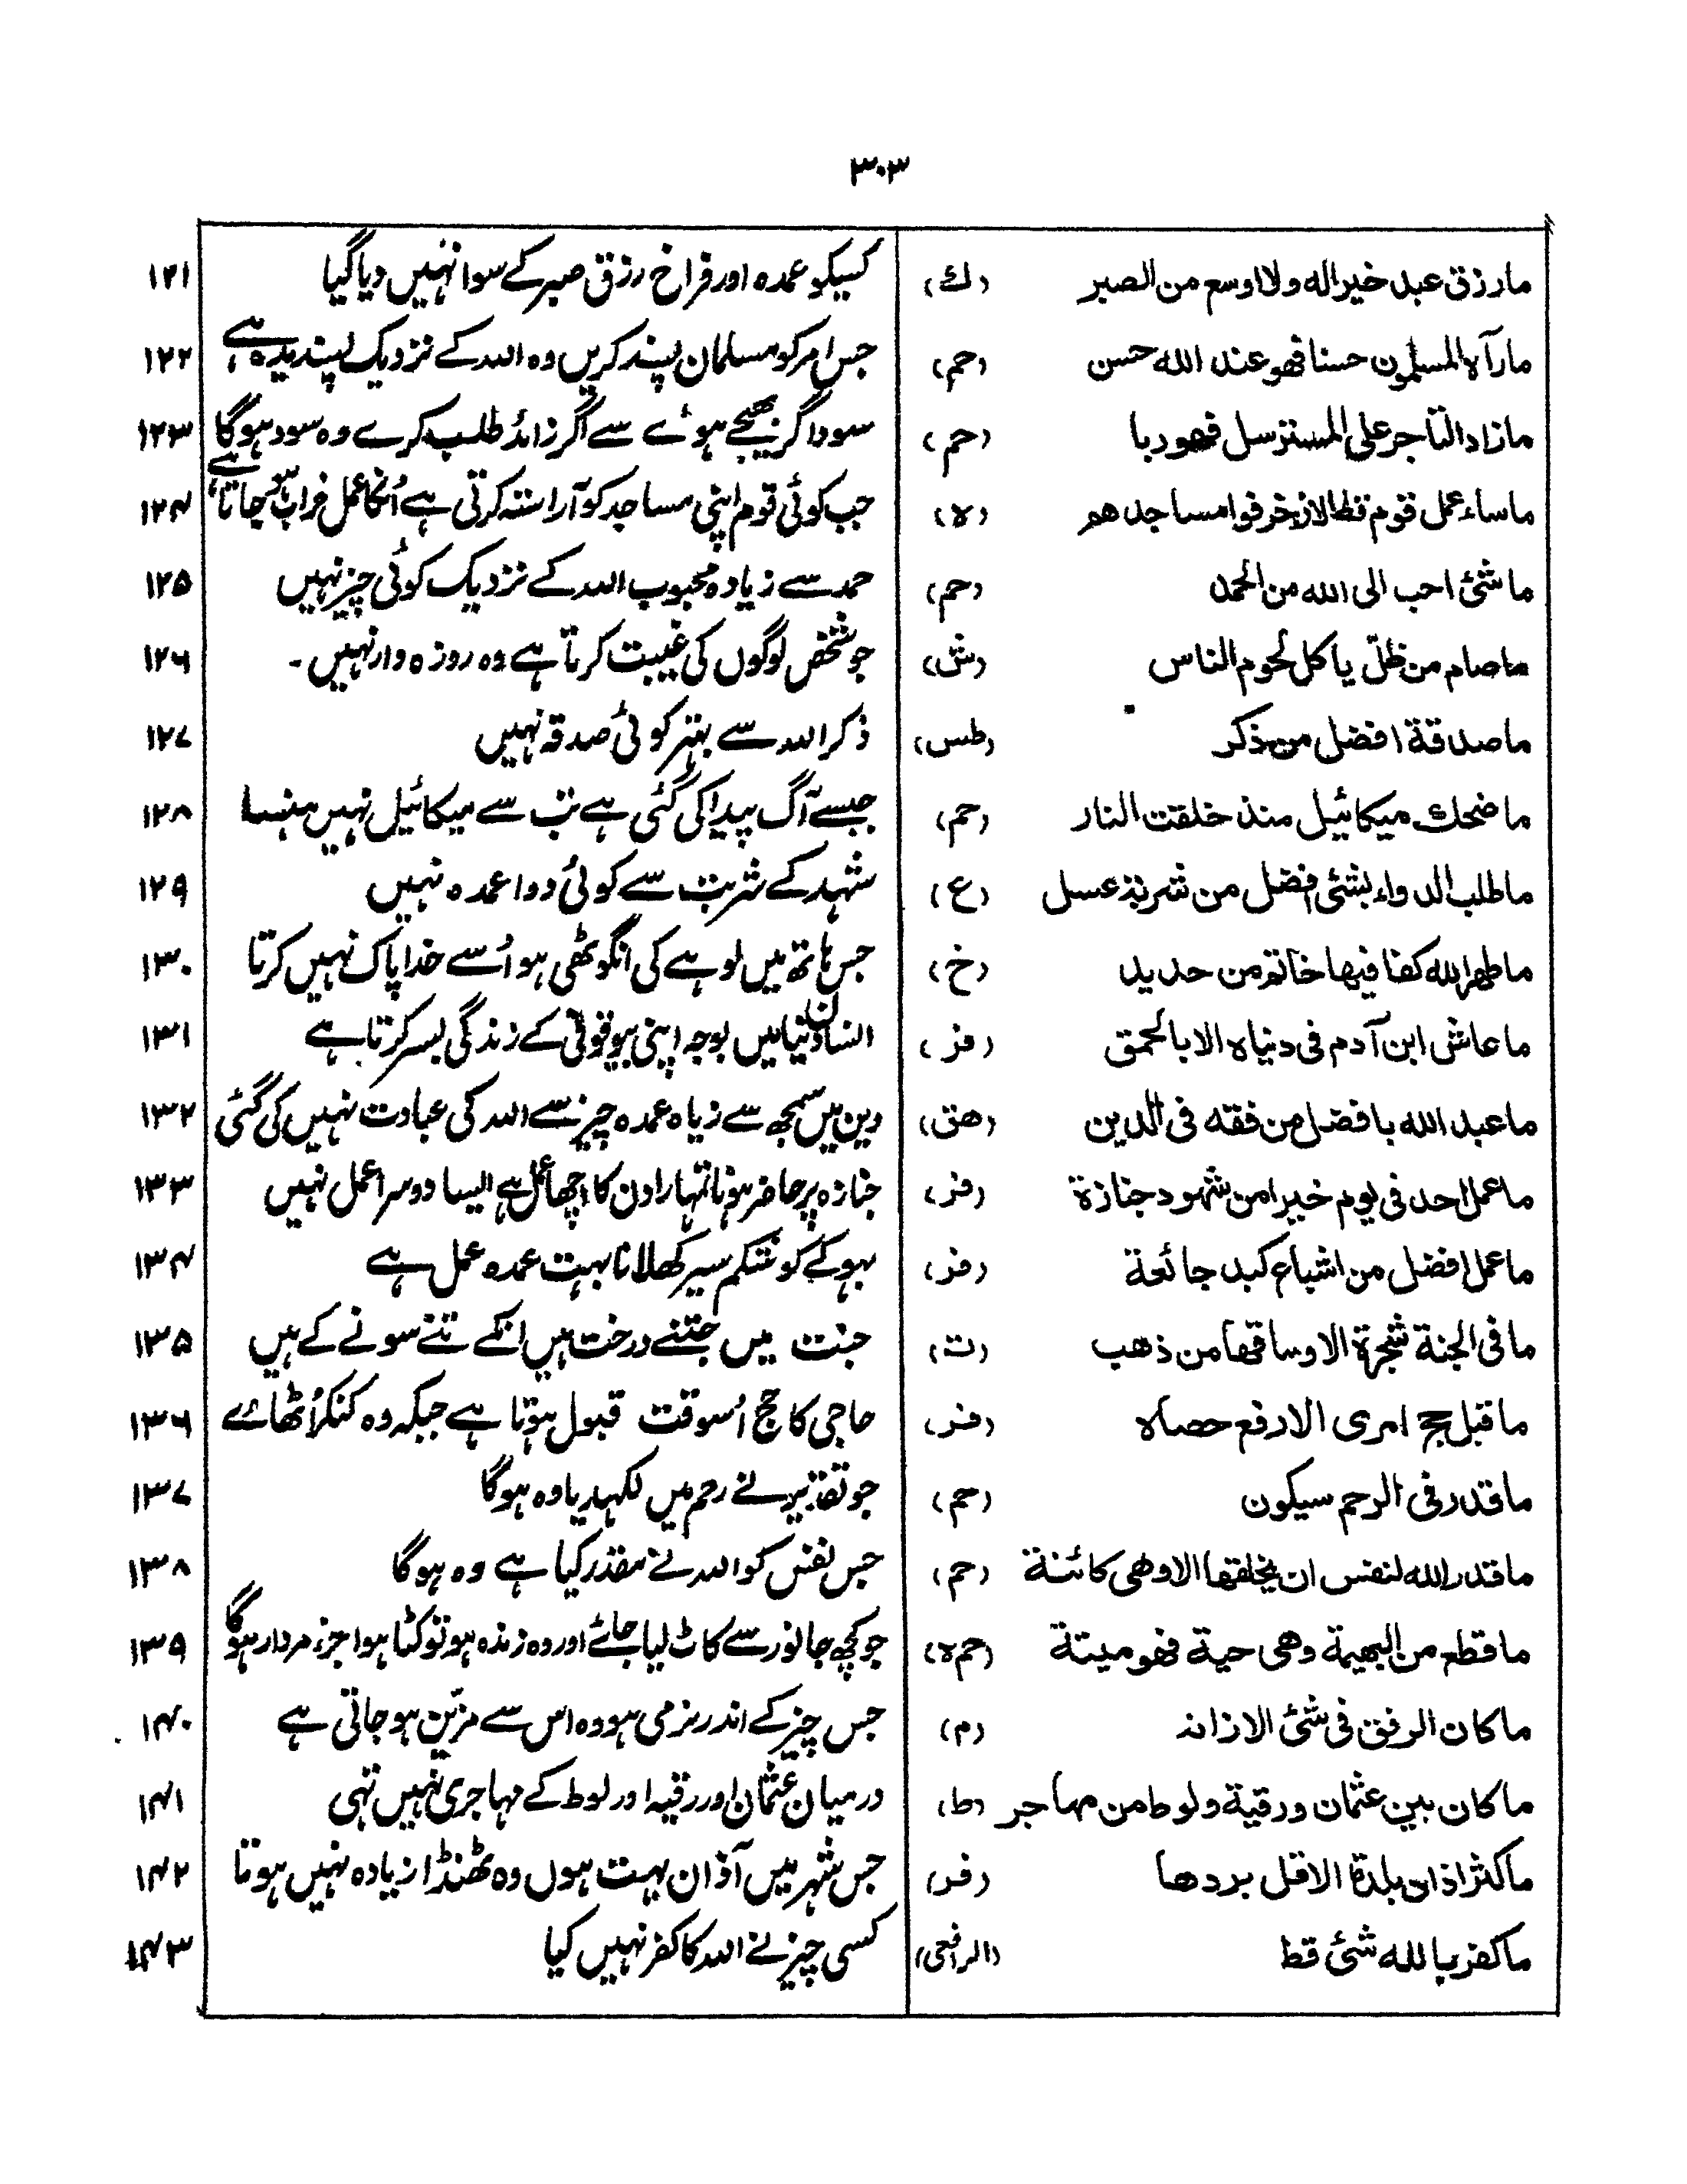 ۳۰۳
مارزق عبد خیرا له ولا اوسع من الصبر (ك) کسیکو عمدہ اور فراخ رزق صبر کے سوا نہیں دیا گیا ۱۲۱
مارآہ المسلمون حسنا فھو عند اللہ حسن (حم) جس امر کو مسلمان پسند کریں وہ اللہ کے نزدیک پسندیدہ ہے ۱۲۲
مازاد التاجر علی المسترسل فھو ربا (حم) سوداگر بھیجے ہوئے سے اگر زائد طلب کرے وہ سود ہوگا ۱۲۳
ماساء عمل قوم قط الا زخرفوا مساجدھم (ہ) جب کوئی قوم اپنی مساجد کو آراستہ کرتی ہے اُنکا عمل خراب ہو جاتا ہے ۱۲۴
ما شئ احب الی اللہ من الحمد (حم) حمد سے زیادہ محبوب اللہ کے نزدیک کوئی چیز نہیں ۱۲۵
ما صام من ظلّ یاکل لحوم الناس (ش) جو شخص لوگوں کی غیبت کرتا ہے وہ روزہ دار نہیں ۔ ۱۲۶
ما صدقة افضل من ذکر (طس) ذکر اللہ سے بہتر کوئی صدقہ نہیں ۱۲۷
ما ضحك میکائیل منذ خلقت النار (حم) جسسے آگ پیدا کی گئی ہے تب سے میکائیل نہیں ہنسا ۱۲۸
ماطلب الدواء بشئ افضل من شربة عسل (ع) شہد کے شربت سے کوئی دوا عمدہ نہیں ۱۲۹
ماطھر اللہ کفا فیھا خاتم من حدید (خ) جس ہاتھ میں لوہے کی انگوٹھی ہو اُسے خدا پاک نہیں کرتا ۱۳۰
ما عاش ابن آدم فی دنیاہ الا بالحمق (فر) انسان دنیا میں بوجہ اپنی بیوقوفی کے زندگی بسر کرتا ہے ۱۳۱
ما عبد اللہ بافضل من فقه فی الدین (ھق) دین میں سمجھ سے زیاہ عمدہ چیز سے اللہ کی عبادت نہیں کی گئی ۱۳۲
ما عمل احد فی یوم خیرا من شھود جنازة (فر) جنازہ پر حاضر ہونا تمہارا دن کا اچھا عمل ہے ایسا دوسرا عمل نہیں ۱۳۳
ما عمل افضل من اشباع کبد جائعة (فر) بہوکے کو شکم سیر کھلانا بہت عمدہ عمل ہے ۱۳۴
ما فی الجنة شجرة الا وساقھا من ذھب (ت) جنت میں جتنے درخت ہیں انکے تنے سونے کے ہیں ۱۳۵
ما قبل حج امری الا رفع حصاہ (فر) حاجی کا حج اُسوقت قبول ہوتا ہے جبکہ وہ کنکر اُٹھاے ۱۳۶
ما قدر فی الرحم سیکون (حم) جو تقدیر نے رحم میں لکہدیا وہ ہوگا ۱۳۷
ما قدر اللہ لنفس ان یخلقھا الا وھی کائنة (حم) جس نفس کو اللہ نے مقدر کیا ہے وہ ہوگا ۱۳۸
ما قطع من البھیمة وھی حیة فھو میتة (حم ہ) جو کچھ جانور سے کاٹ لیا جائے اور وہ زندہ ہو تو کٹا ہوا جزء مردار ہوگا ۱۳۹
ما کان الرفق فی شئ الا زانه (م) جس چیز کے اندر نرمی ہو وہ اس سے مزیّن ہو جاتی ہے ۱۴۰
ما کان بین عثمان ورقیة ولوط من مھاجر (ط) درمیان عثمان اور رقیہ اور لوط کے مہاجری نہیں تہی ۱۴۱
ما کثر اذان بلدة الا قل بردھا (فر) جس شہر میں آذان بہت ہوں وہ ٹھنڈا زیادہ نہیں ہوتا ۱۴۲
ما کفر باللہ شئ قط (الرافعی) کسی چیز نے اللہ کا کفر نہیں کیا ۱۴۳